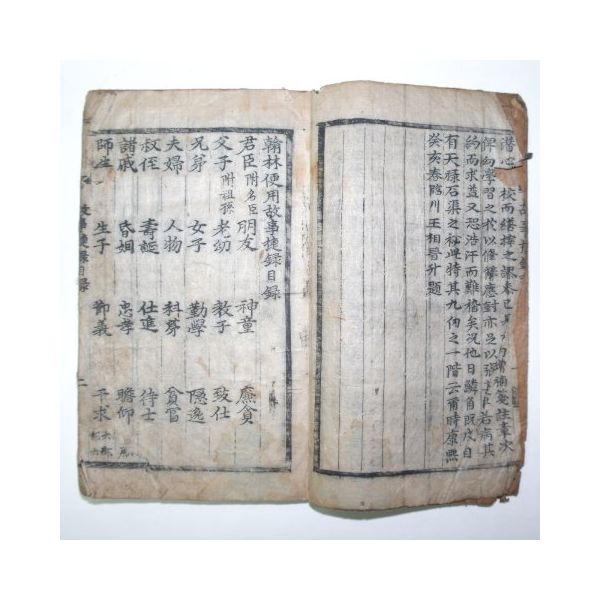 潛心 校而 之課
學習之 以修 應對亦足以 若病其
約而求益又恐浩汗而難稽矣況他日麟角旣成自
有天祿石渠之秘此特其九仞之一階云爾時康熙
癸亥春臨川王相晉升題
翰林便用故事捷録目録
君臣附名臣 朋友 神童 廉貪
父子附祖孫 老幼 教子 致仕
兄弟 女子 勤學 隱逸
夫婦 人物 科第 貧官
叔侄 壽誕 仕進 待士
諸戚 昏姻 忠孝 瞻仰
師生 生子 節義 干求
故事捷録目録 二